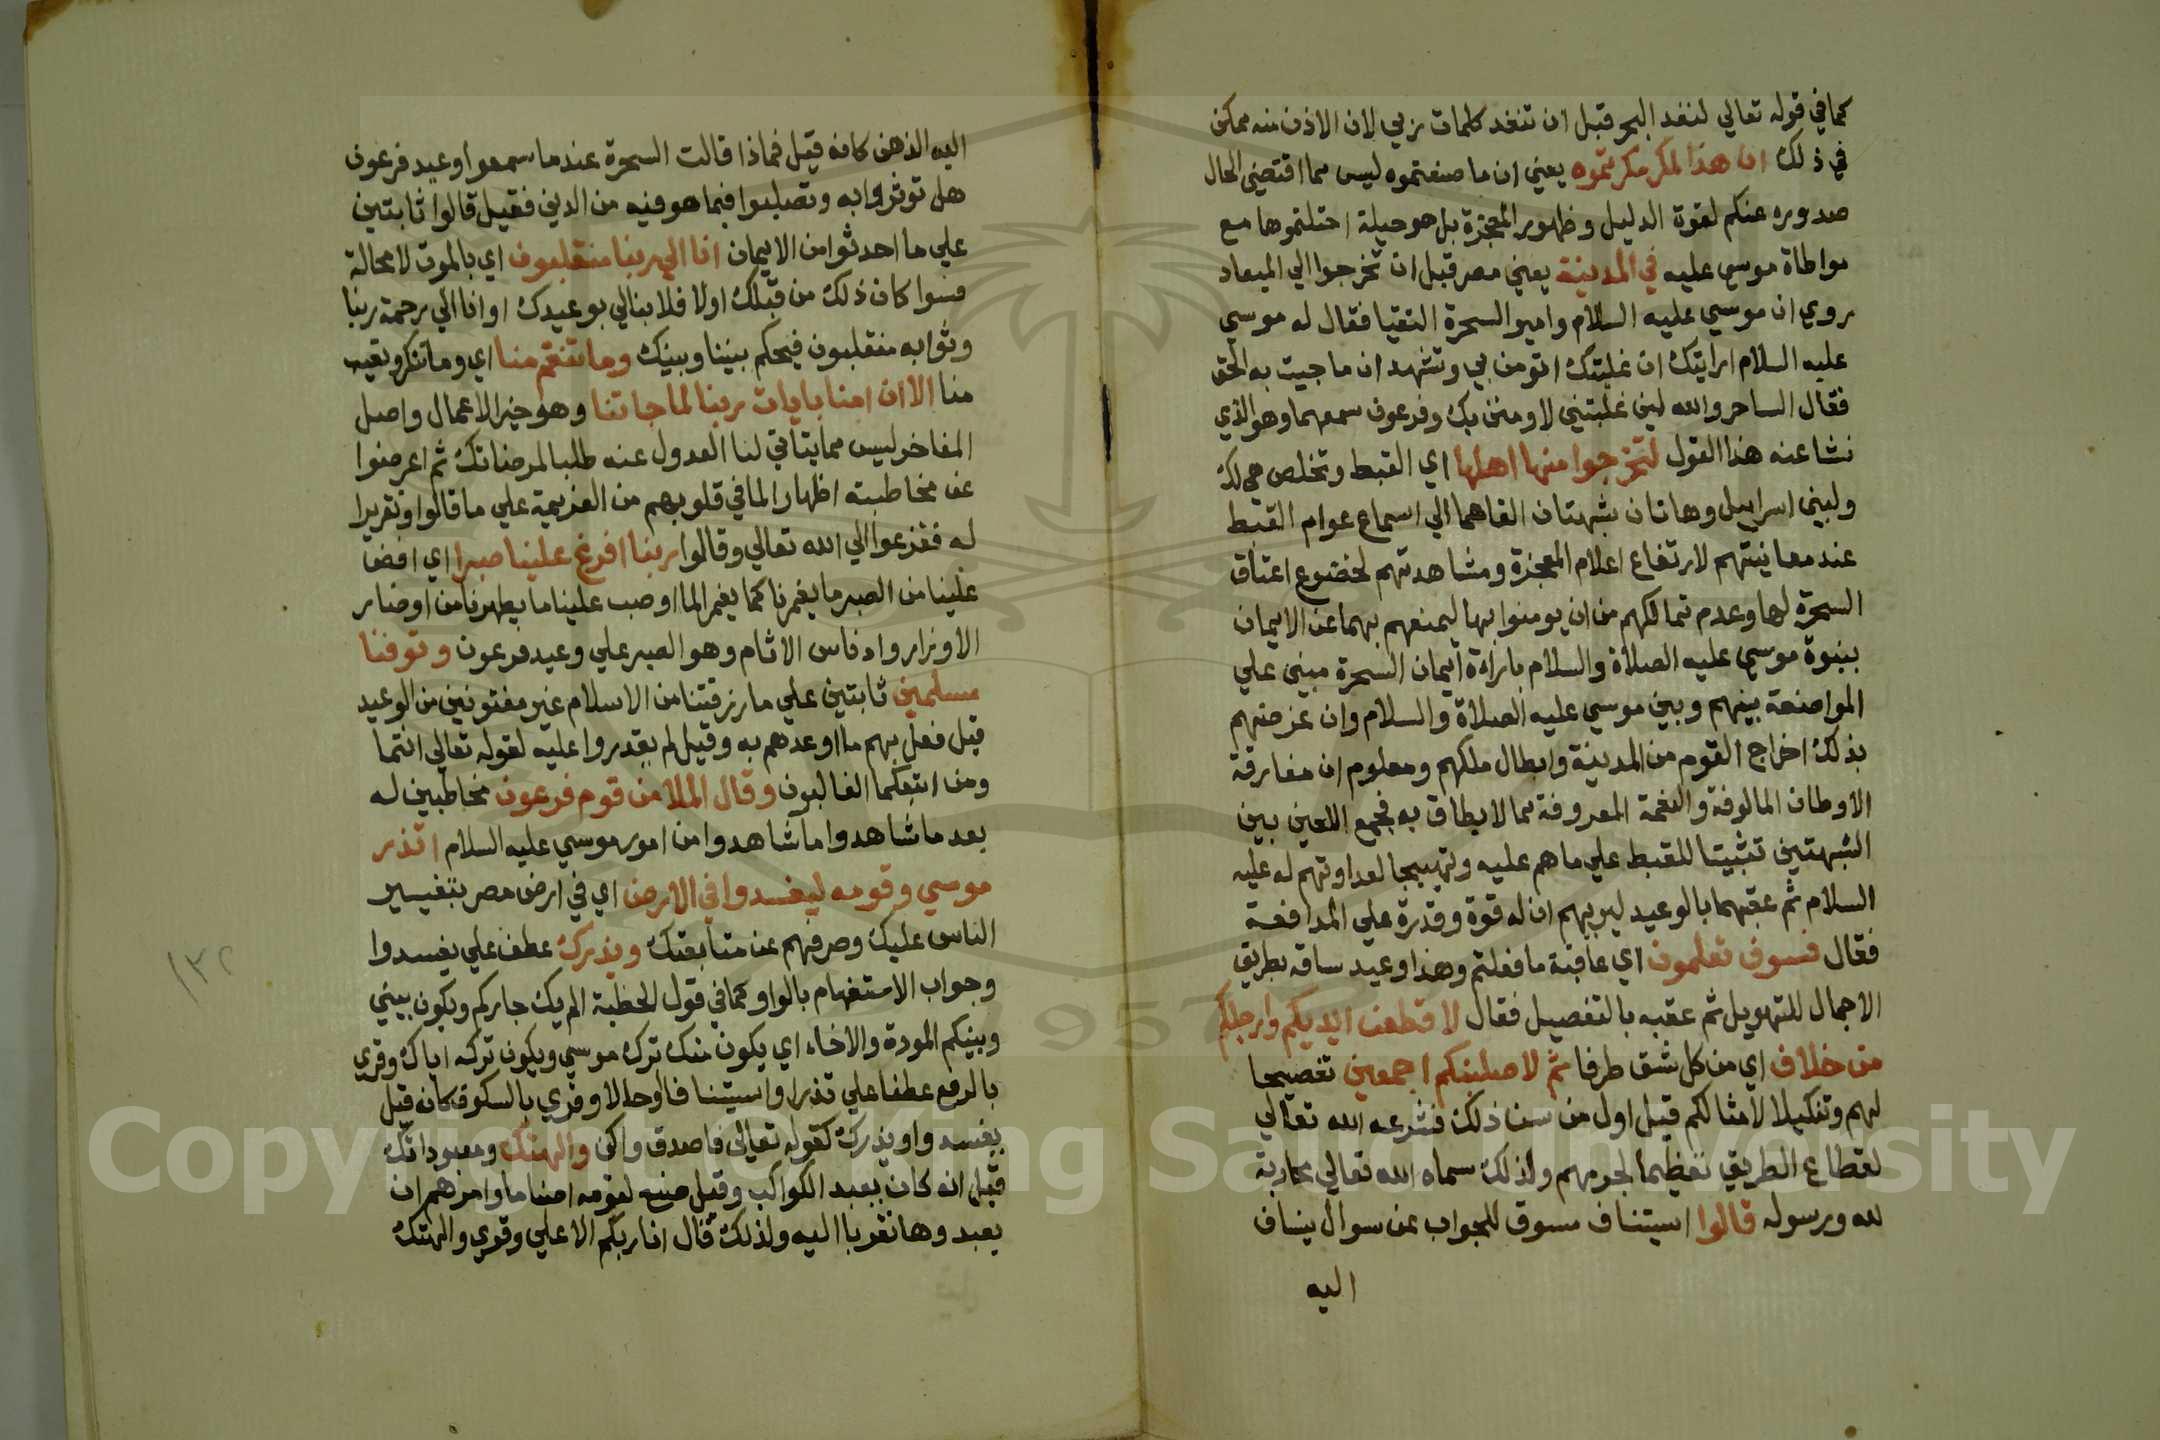 كما في قوله تعالي لنفد البحر قبل ان تنفد كلمات ربي لان الاذن منه ممكن
في ذلك ان هذا لمكر مكرتموه يعني ان ما صنعتموه ليس مما اقتضي الحال
صدوره عنكم لقوة الدليل وظهور المعجزة بل هو حيلة احتلتموها مع
مواطاة موسي عليه في المدينة يعني مصر قبل ان تخرجوا الي الميعاد
روي ان موسي عليه السلام وامير السحرة التقيا فقال له موسي
عليه السلام ارايتك ان غلبتك اتومن بي وتشهد ان ما جيت به الحق
فقال الساحر والله لين غلبتني لاومنن بك وفرعون سمعهما وهو الذي
نشا عنه هذا القول لتخرجوا منها اهلها اي القبط وتخلص هي لك
ولبني اسراييل وهاتان شبهتان القاهما الي اسماع عوام القبط
عند معاينتهم لارتفاع اعلام المعجزة ومشاهدتهم لخضوع اعناق
السحرة لها وعدم تمالكهم من ان يومنوا بها ليمنعهم بهما عن الايمان
بنبوة موسي عليه الصلاة والسلام باراءة ايمان السحرة مبني علي
المواضعة بينهم وبين موسي عليه الصلاة والسلام وان غرضهم
بذلك اخراج القوم من المدينة وابطال ملكهم ومعلوم ان مفارقة
الاوطان المالوفة والنعمة المعروفة مما لا يطاق به فجمع اللعين بين
الشبهتين تثبيتا للقبط علي ما هم عليه وتهييجا لعداوتهم له عليه
السلام ثم عقبهما بالوعيد ليريهم ان له قوة وقدرة علي المدافعة
فقال فسوف تعلمون اي عاقبة ما فعلتم وهذا وعيد ساقه بطريق
الاجمال للتهويل ثم عقبه بالتفصيل فقال لاقطعن ايديكم وارجلكم
من خلاف اي من كل شق طرفا ثم لاصلبنكم اجمعين تفضيحا
لهم وتنكيلا لامثالكم قيل اول من سن ذلك فشرعه الله تعالي
لقطاع الطريق تعظيما لجرمهم ولذلك سماه الله تعالي محاربة
لله ورسوله قالوا استيناف مسوق للجواب عن سوال ينساق
اليه
اليه الذهن كانه قيل فماذا قالت السحرة عندما سمعوا وعيد فرعون
هل توثروا به وتصلبوا فيما هو فيه من الدين فقيل قالوا ثابتين
علي ما احدثوا من الايمان انا الي ربنا منقلبون اي بالموت لا محالة
فسوا كان ذلك من قبلك اولا فلا بنالي بوعيدك او انا الي رحمة ربنا
وثوابه منقلبون فيحكم بيننا وبينك وما تنقم منا اي وما تنكر وتعيب
منا الا ان امنا بايات ربنا لما جاتنا وهو خير الاعمال واصل
المفاخر ليس مما يتاتي لنا العدول عنه طلبا لمرضاتك ثم اعرضوا
عن مخاطبته اظهارا لما في قلوبهم من العزيمة علي ما قالوا وتقريرا
له ففزعوا الي الله تعالي وقالوا ربنا افرغ علينا صبرا اي افض
علينا من الصبر ما يغمرنا كما يغمر الما او صب علينا ما يطهرنا من اوضار
الاوزار وادناس الاثام وهو الصبر علي وعيد فرعون وتوفنا
مسلمين ثابتين علي ما رزقتنا من الاسلام غير مفتونين من الوعيد
قيل فعل بهم ما اوعدهم به وقيل لم يقدروا عليه لقوله تعالي انتما
ومن اتبعكما الغالبون وقال الملا من قوم فرعون مخاطبين له
بعد ما شاهدوا ما شاهدوا من امور موسي عليه السلام اتذر
موسي وقومه ليفسدوا في الارض اي في ارض مصر بتغيير
الناس عليك وصرفهم عن متابعتك ويذرك عطف علي يفسدوا
وجواب الاستفهام بالواو كما في قول الحطية الم يك جاركم ويكون بيني
وبينكم المودة والاخاء اي يكون منك ترك موسي ويكون تركه اياك وقري
بالرفع عطفا علي تذر او استينافا او حالا وقري بالسكون كانه قيل
يفسدوا ويذرك كقوله تعالي فاصدق واكن والهتك ومعبوداتك
قيل انه كان يعبد الكواكب وقيل صنع لقومه اصناما وامرهم ان
يعبدوها تقربا اليه ولذلك قال انا ربكم الاعلي وقري والهتك
١٣٢
Copyright © King Saud University
1957